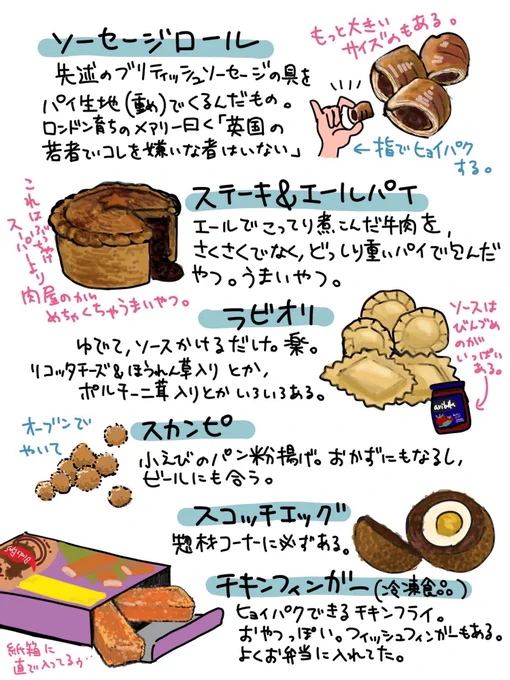 ソーセージロール
先述のブリティッシュソーセージの具を
パイ生地(重め)でくるんだもの。
ロンドン育ちのメアリー曰く「英国の
若者でコレを嫌いな者はいない」
もっと大きい
サイズのもある。
←指でヒョイパク
する。
ステーキ&エールパイ
エールでこってり煮こんだ牛肉を、
さくさくでなく、どっしり重いパイで包んだ
やつ。うまいやつ。
これはぶっちゃけ
スーパーより
肉屋のがい
めちゃくちゃうまいやつ。
ラビオリ
ゆでて、ソースかけるだけ。楽。
リコッタチーズ&ほうれん草入りとか、
ポルチーニ茸入りとかいろいろある。
ソースは
びんづめ
のが
いっぱい
ある。
スカンピ
小えびのパン粉揚げ。おかずにもなるし、
ビールにも合う。
オーブンで
やいて
スコッチエッグ
惣材コーナーに必ずある。
チキンフィンガー(冷凍食品)
ヒョイパクできるチキンフライ。
おやつっぽい。フィッシュフィンガーもある。
よくお弁当に入れてた。
紙箱に
直で入ってるが…